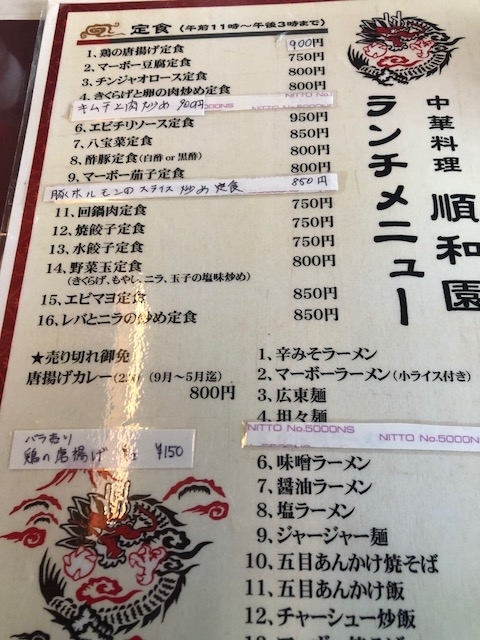 定食 (午前11時〜午後3時まで)
1、鶏の唐揚げ定食 900円
2、マーボー豆腐定食 750円
3、チンジャオロース定食 800円
4、きくらげと卵の肉炒め定食 800円
キムチと肉炒め 900円
NITTO No.5000NS
6、エビチリソース定食 950円
7、八宝菜定食 850円
8、酢豚定食(白酢 or 黒酢) 800円
9、マーボー茄子定食 800円
豚ホルモンのスライス炒め定食 850円
11、回鍋肉定食 750円
12、焼餃子定食 750円
13、水餃子定食 750円
14、野菜玉定食 800円
(きくらげ、もやし、ニラ、玉子の塩味炒め)
15、エビマヨ定食 850円
16、レバとニラの炒め定食 850円
★売り切れ御免
唐揚げカレー (9月〜5月迄)
800円
バラ売り
鶏の唐揚げ ¥150
中華料理 順和園
ランチメニュー
1、辛みそラーメン
2、マーボーラーメン(小ライス付き)
3、広東麺
4、担々麺
NITTO No.5000NS
6、味噌ラーメン
7、醤油ラーメン
8、塩ラーメン
9、ジャージャー麺
10、五目あんかけ焼そば
11、五目あんかけ飯
12、チャーシュー炒飯